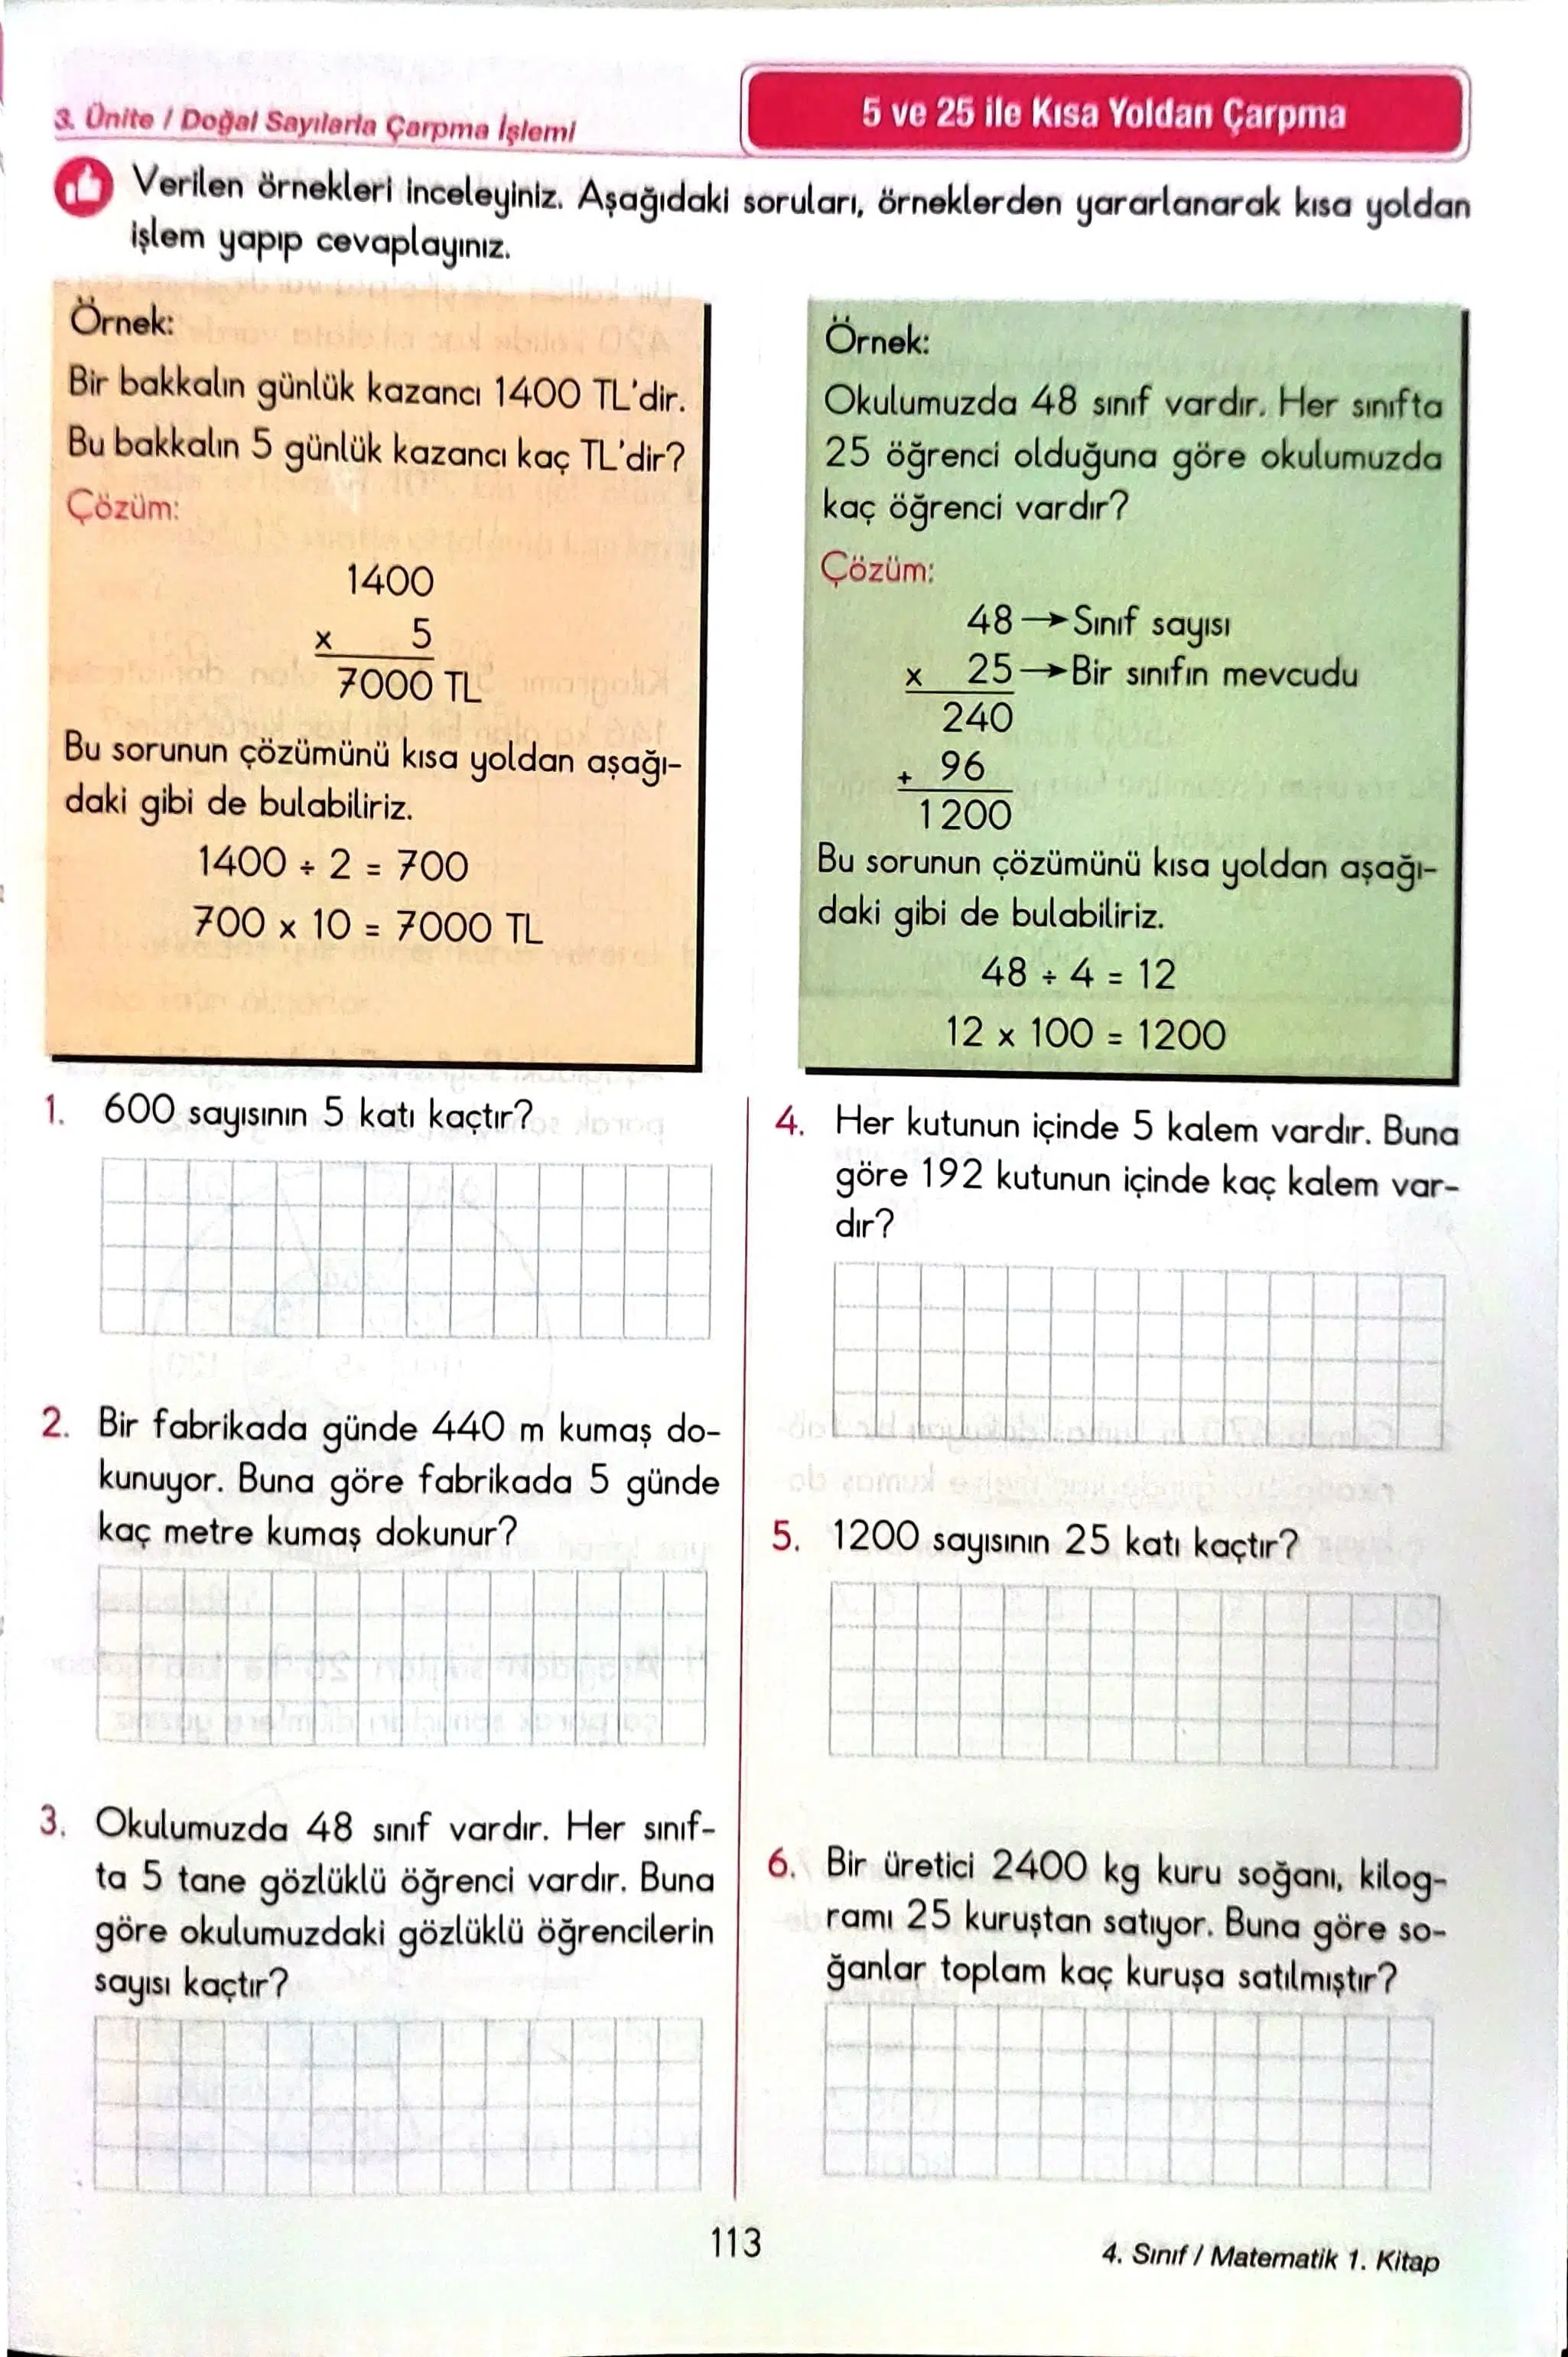 3. Ünite / Doğal Sayılarla Çarpma İşlemi
5 ve 25 ile Kısa Yoldan Çarpma
Verilen örnekleri inceleyiniz. Aşağıdaki soruları, örneklerden yararlanarak kısa yoldan
işlem yapıp cevaplayınız.
Örnek:
Bir bakkalın günlük kazancı 1400 TL'dir.
Bu bakkalın 5 günlük kazancı kaç TL'dir?
Çözüm:
1400
x 5
7000 TL
Bu sorunun çözümünü kısa yoldan aşağı-
daki gibi de bulabiliriz.
1400 ÷ 2 = 700
700 x 10 = 7000 TL
Örnek:
Okulumuzda 48 sınıf vardır. Her sınıfta
25 öğrenci olduğuna göre okulumuzda
kaç öğrenci vardır?
Çözüm:
48 → Sınıf sayısı
x 25 → Bir sınıfın mevcudu
240
+ 96
1200
Bu sorunun çözümünü kısa yoldan aşağı-
daki gibi de bulabiliriz.
48 ÷ 4 = 12
12 x 100 = 1200
1. 600 sayısının 5 katı kaçtır?
2. Bir fabrikada günde 440 m kumaş do-
kunuyor. Buna göre fabrikada 5 günde
kaç metre kumaş dokunur?
3. Okulumuzda 48 sınıf vardır. Her sınıf-
ta 5 tane gözlüklü öğrenci vardır. Buna
göre okulumuzdaki gözlüklü öğrencilerin
sayısı kaçtır?
4. Her kutunun içinde 5 kalem vardır. Buna
göre 192 kutunun içinde kaç kalem var-
dır?
5. 1200 sayısının 25 katı kaçtır?
6. Bir üretici 2400 kg kuru soğanı, kilog-
ramı 25 kuruştan satıyor. Buna göre so-
ğanlar toplam kaç kuruşa satılmıştır?
113
4. Sınıf / Matematik 1. Kitap